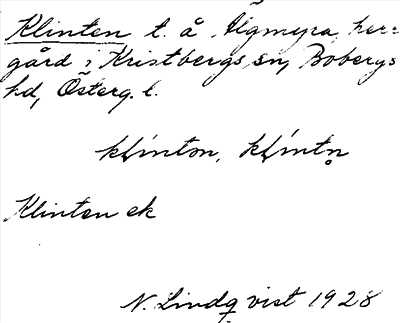 Klinten t. å Älgmyra, herr=
gård i Kristbergs sn, Bobergs
hd, Österg. l.
klinton, klintn̥
Klinten ek
N. Lindqvist 1928